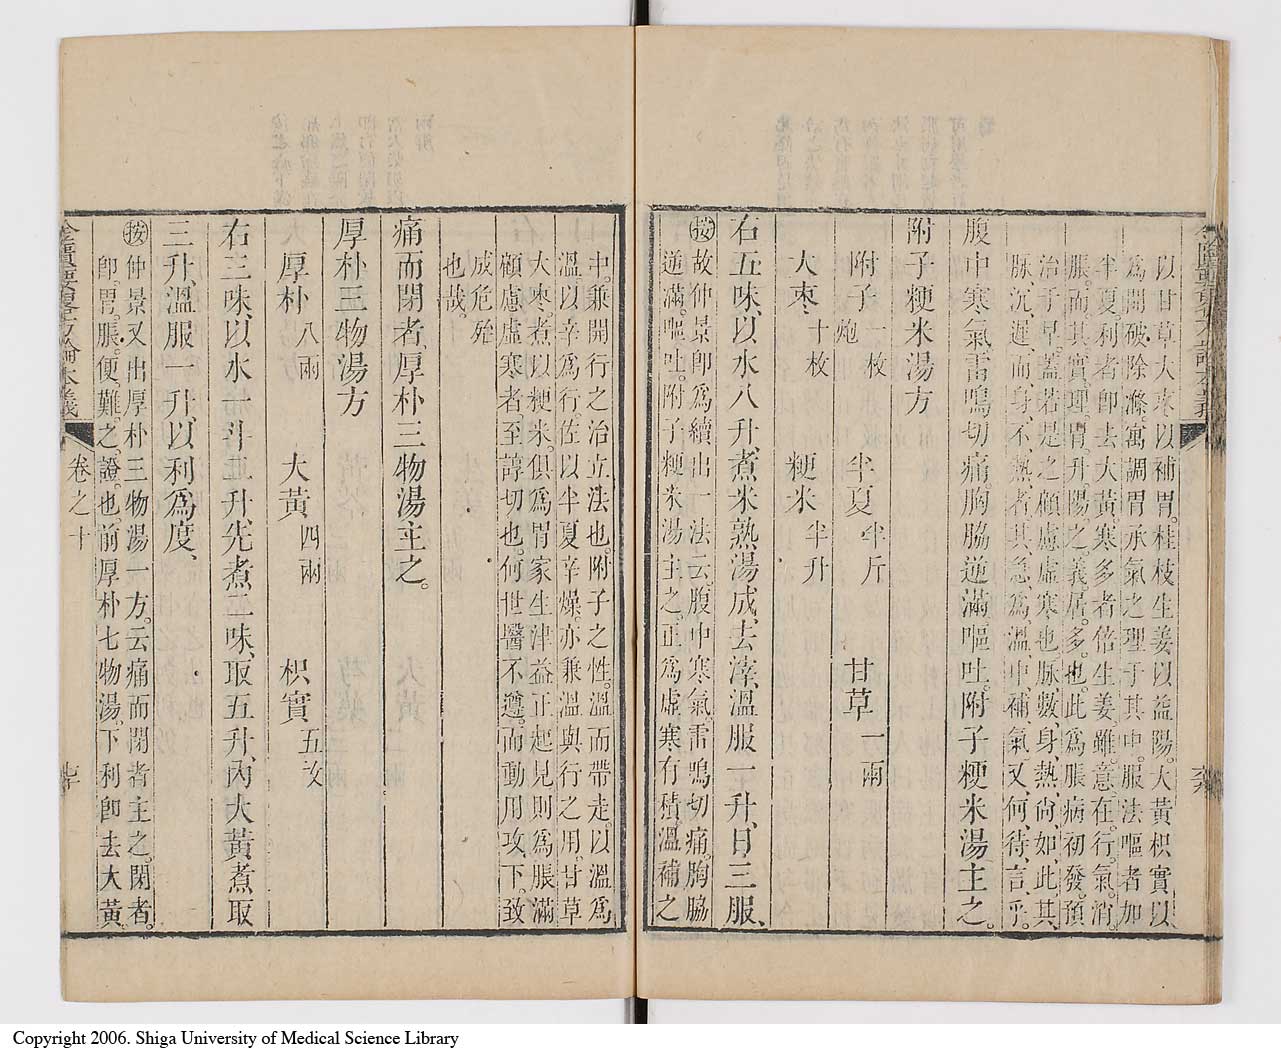 以甘草大枣以補胃。桂枝生姜以益陽。大黃枳實以
爲開破除滌。寓調胃承氣之理于其中。服法嘔者加
半夏利者卽去大黃。寒多者倍生姜。雖意在行氣消
脹。而其實理胃升陽之義居多也。此爲脹病初發。預
治于早。蓋若是之顧慮虛寒也。脉數身熱。尙如此。其
脉沉遲。而身不熱者。其急爲溫中補氣又何待言乎。
腹中寒氣雷鳴切痛。胸脇逆滿嘔吐。附子粳米湯主之。
附子粳米湯方
附子炮 枚 半夏半斤 甘草一兩
大枣十枚 粳米半升
右五味、以水八升、煮米熟、湯成、去滓、溫服一升、日三服、
按故仲景卽爲續出一法云。腹中寒氣。雷鳴切痛。胸脇
逆滿。嘔吐。附子粳米湯主之。正爲虛寒有積溫補之
中。兼開行之治立法也。附子之性。溫而帶走。以溫爲
溫以辛爲行。佐以半夏辛燥。亦兼溫與行之用。甘草
大枣。煮以粳米。俱爲胃家生津益正起見。則爲脹滿
顧慮虛寒者。至諄切也。何世醫不遵。而動用攻下。致
成危殆
也哉。
痛而閉者、厚朴三物湯主之。
厚朴三物湯方
厚朴八兩 大黃四兩 枳實五枚
右三味、以水一斗二升、先煮二味、取五升、內大黃、煮取
三升、溫服一升、以利爲度、
按仲景又出厚朴三物湯一方。云痛而閉者主之。閉者。
卽胃脹。便難之證也。前厚朴七物湯。下利卽去大黃。
金匱要畧方論本義
卷之十
Copyright 2006. Shiga University of Medical Science Library